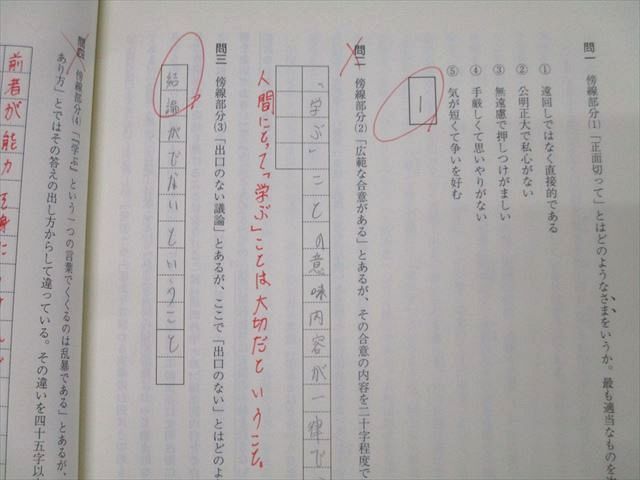 問一 傍線部分(1)「正面切って」とはどのようなさまをいうか。最も適当なものを次
① 遠回しではなく直接的である
② 公明正大で私心がない
③ 無遠慮で押しつけがましい
④ 手厳しくて思いやりがない
⑤ 気が短くて争いを好む
1
問二 傍線部分(2)「広範な合意がある」とあるが、その合意の内容を二十字程度で
「学ぶ」ことの意味内容が一律で
人間にとって「学ぶ」ことは大切だということ。
問三 傍線部分(3)「出口のない議論」とあるが、ここで「出口のない」とはどのよ
結論がでないということ
問四 傍線部分(4)「「学ぶ」という一つの言葉でくくるのは乱暴である」とあるが、
あり方」とではその答えの出し方からして違っている。その違いを四十五字以
前者が能力を身に